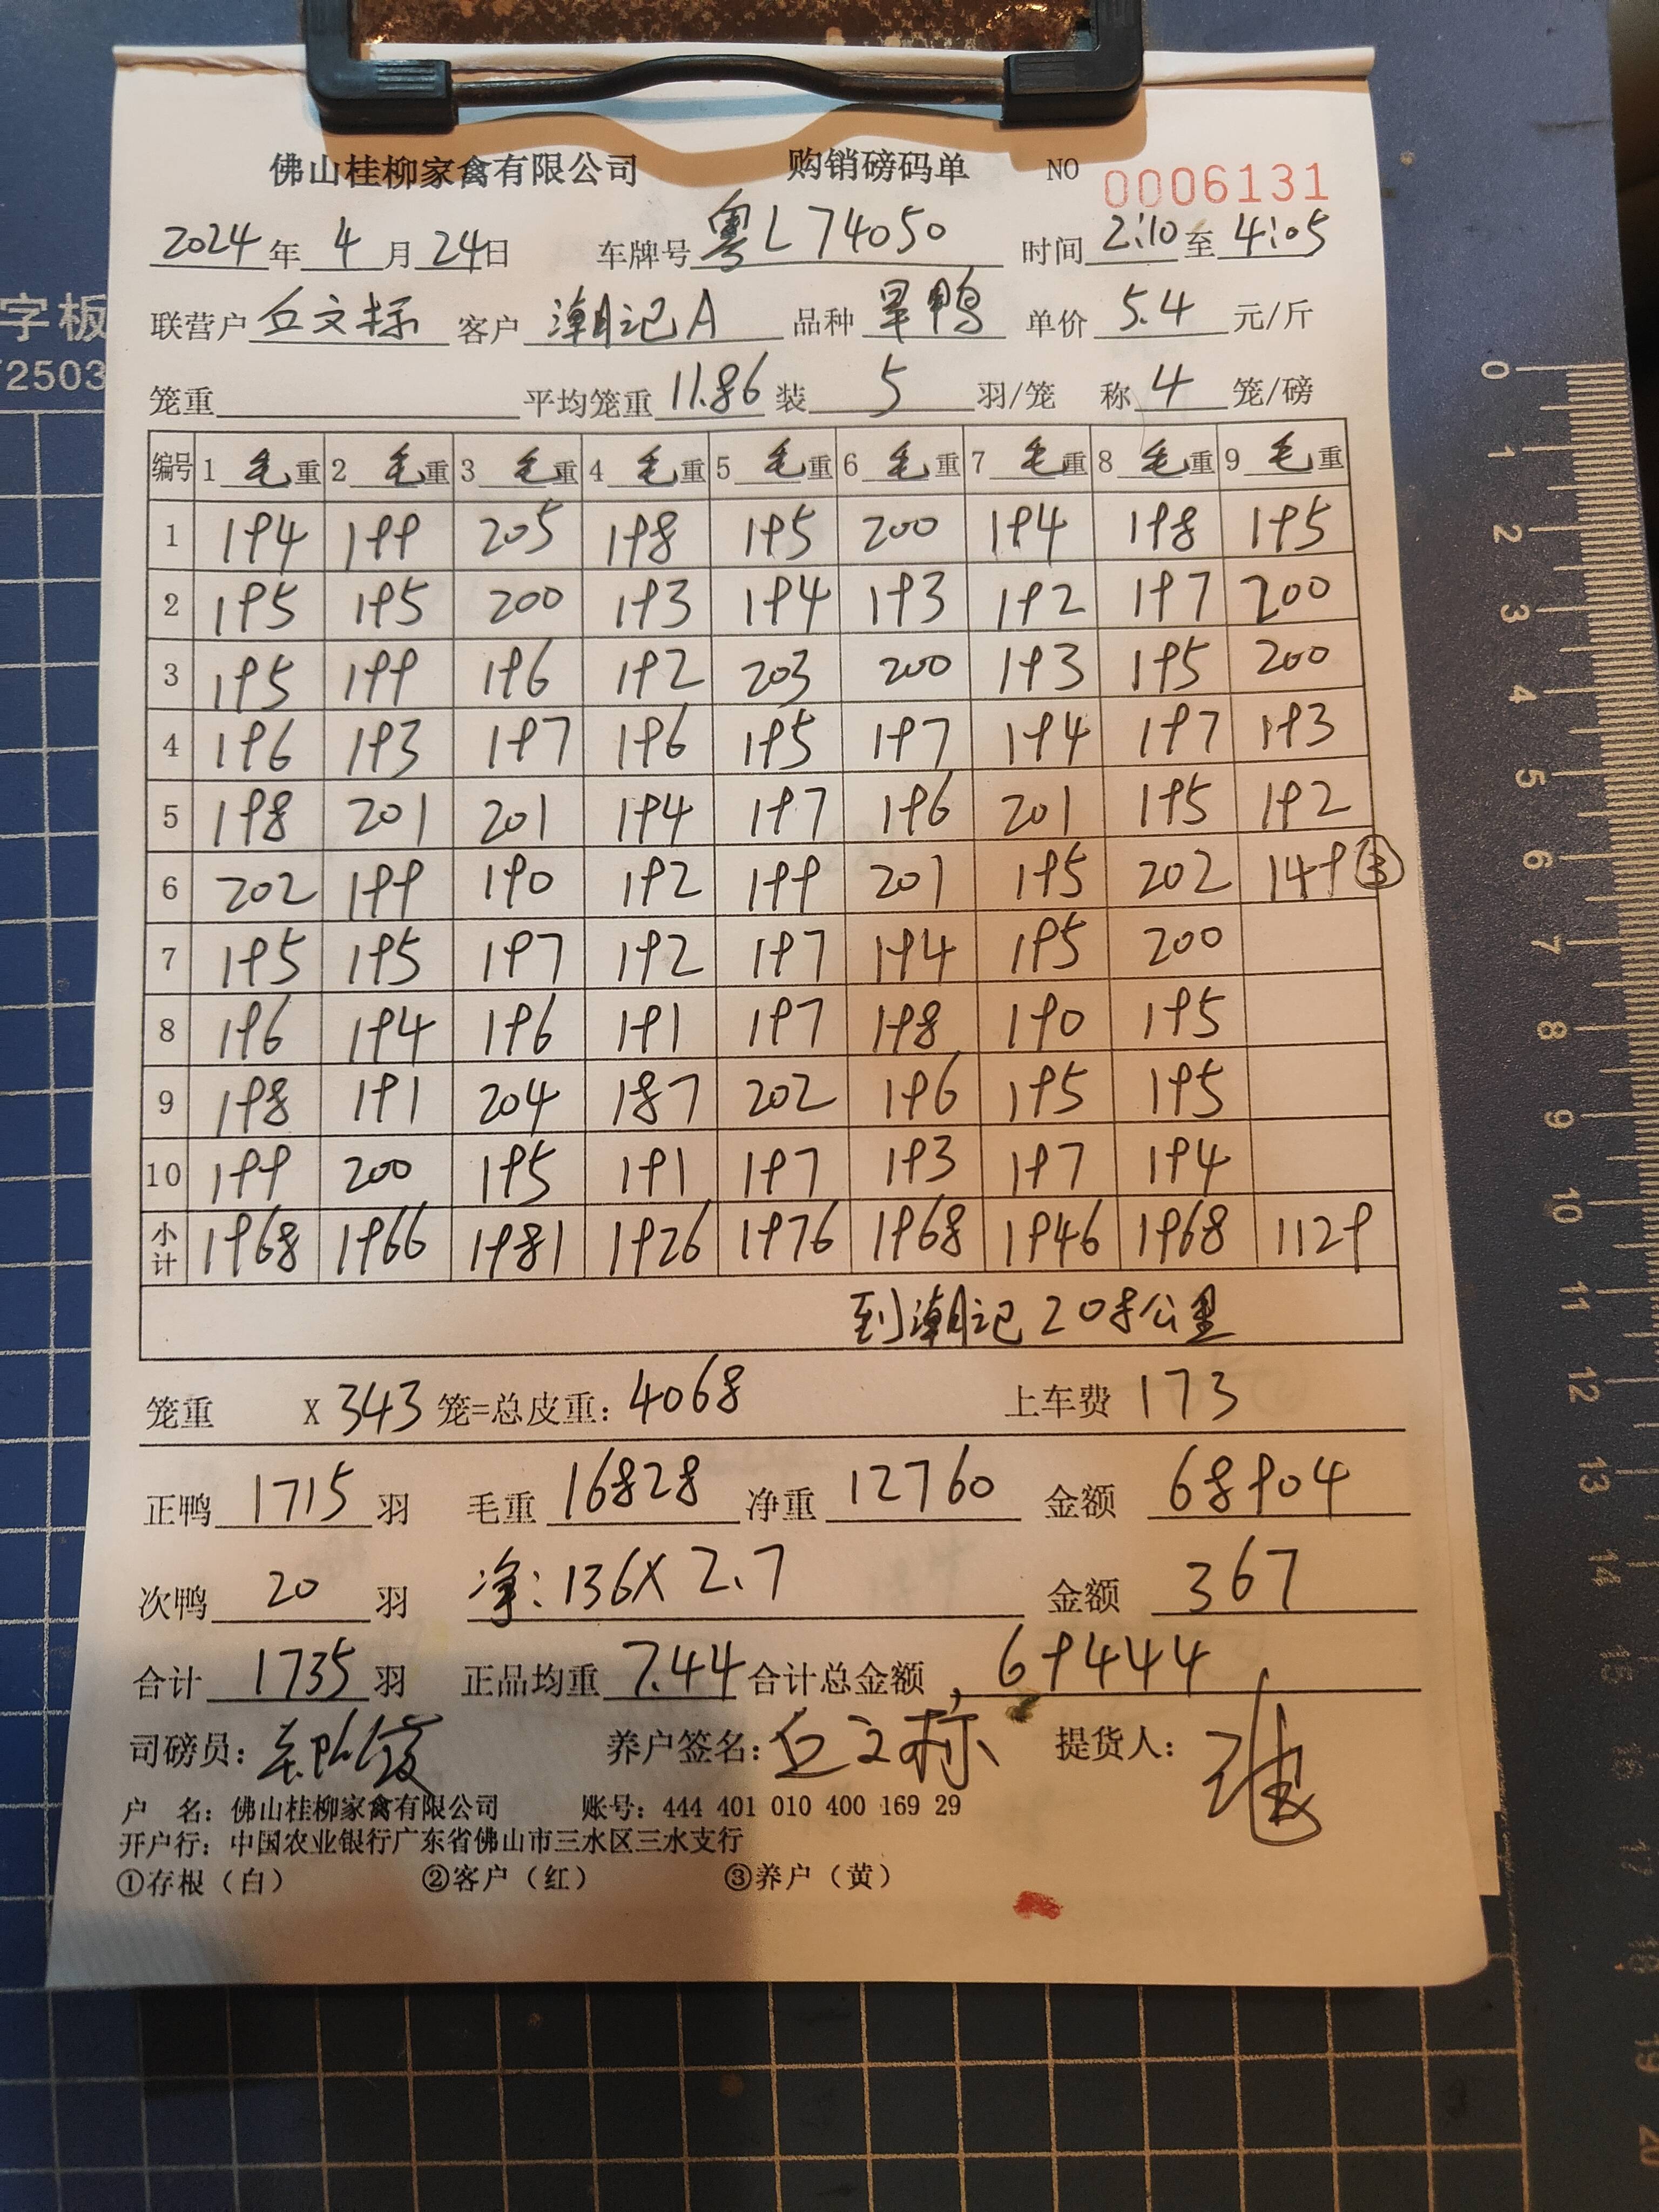 字板
2503
佛山桂柳家禽有限公司 购销磅码单 NO 0006131
2024年4月24日 车牌号 粤L74050 时间 2:10 至 4:05
联营户 丘文标 客户 潮记A 品种 旱鸭 单价 5.4 元/斤
笼重 平均笼重 11.86 装 5 羽/笼 称 4 笼/磅
编号 1 毛重 2 毛重 3 毛重 4 毛重 5 毛重 6 毛重 7 毛重 8 毛重 9 毛重
1 194 199 205 198 195 200 194 198 195
2 195 195 200 193 194 193 192 197 200
3 195 199 196 192 203 200 193 195 200
4 196 193 197 196 195 197 194 197 193
5 198 201 201 194 197 196 201 195 192
6 202 199 190 192 199 201 195 202 149 ③
7 195 195 197 192 197 194 195 200
8 196 194 196 191 197 198 190 195
9 198 191 204 187 202 196 195 195
10 199 200 195 191 197 193 197 194
小计 1968 1966 1981 1926 1976 1968 1946 1968 1129
到潮记208公里
笼重 X 343 笼=总皮重: 4068 上车费 173
正鸭 1715 羽 毛重 16828 净重 12760 金额 68904
次鸭 20 羽 净:136X2.7 金额 367
合计 1735 羽 正品均重 7.44 合计总金额 69444
司磅员: 养户签名: 丘文标 提货人:
户 名: 佛山桂柳家禽有限公司 账号: 444 401 010 400 169 29
开户行: 中国农业银行广东省佛山市三水区三水支行
①存根(白) ②客户(红) ③养户(黄)
0 1 2 3 4 5 6 7 8 9 10 11 12 13 14 15 16 17 18 19 20